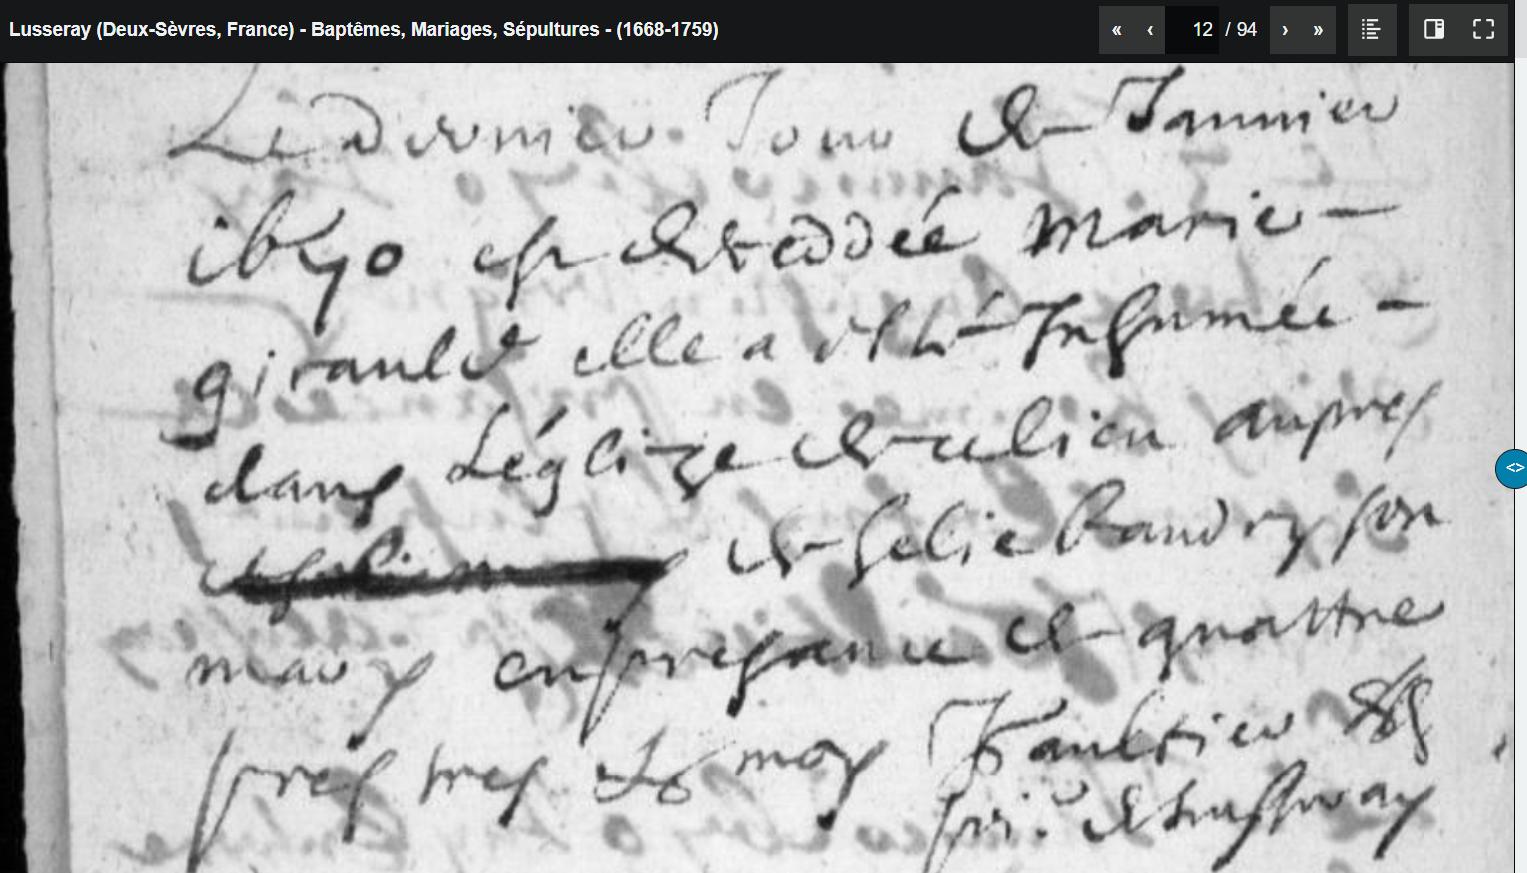 Lusseray (Deux-Sèvres, France) - Baptêmes, Mariages, Sépultures - (1668-1759)
« ‹ 12 / 94 › »
Le dernier Jour de Januier
1670 est decedée marie
girault elle a esté Inhumée
dans Léglize de ce lieu aupres
de helie Baudry son
mary en presance de quattre
prestres & moy Gaultier
pri. de Lusseray
<>